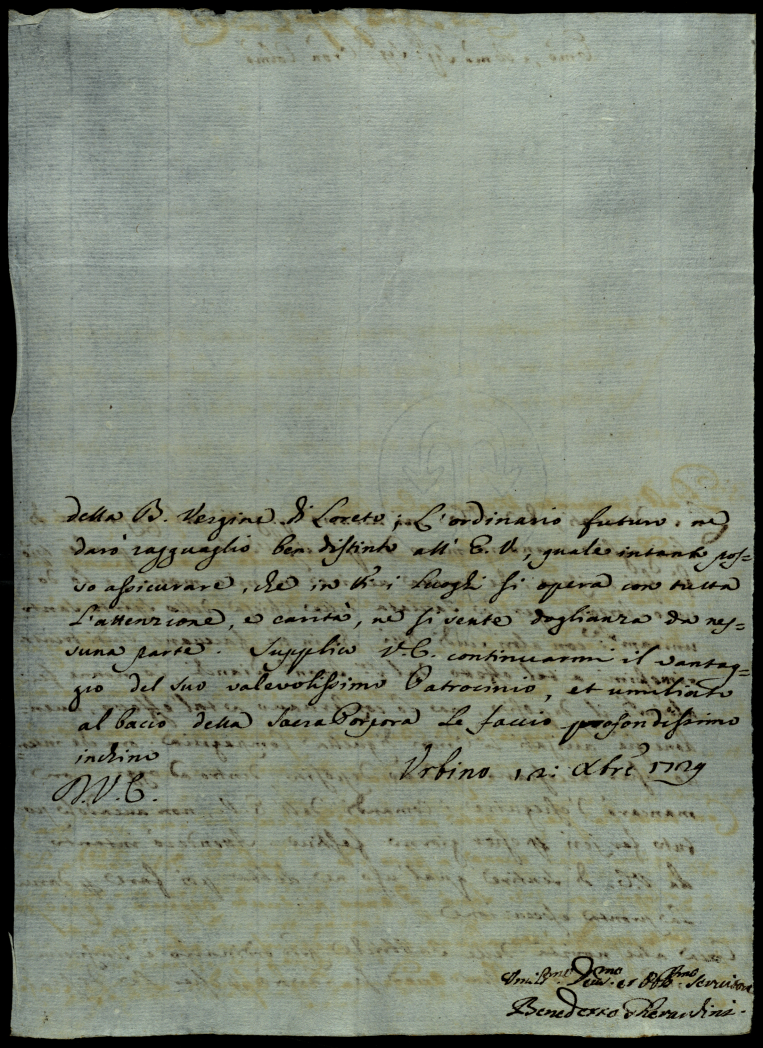 della B. Vergine di Loreto; L'ordinario futuro, ne
darò ragguaglio ben distinto all' E. V., quale intanto pos=
so assicurare, che in tti i Luoghi si opera con tutta
L'attenzione, e carità, ne si sente doglianza da nes=
suna parte. Supplico V.E. continuarmi il vantag=
gio del suo valevolissimo Patrocinio, et umiliato
al bacio della Sacra Porpora Le faccio profondissimo
inchino
Urbino 12: Xbre 1729
D.V.E.
Umilmo Devmo et Obbmo Servitore
Benedetto